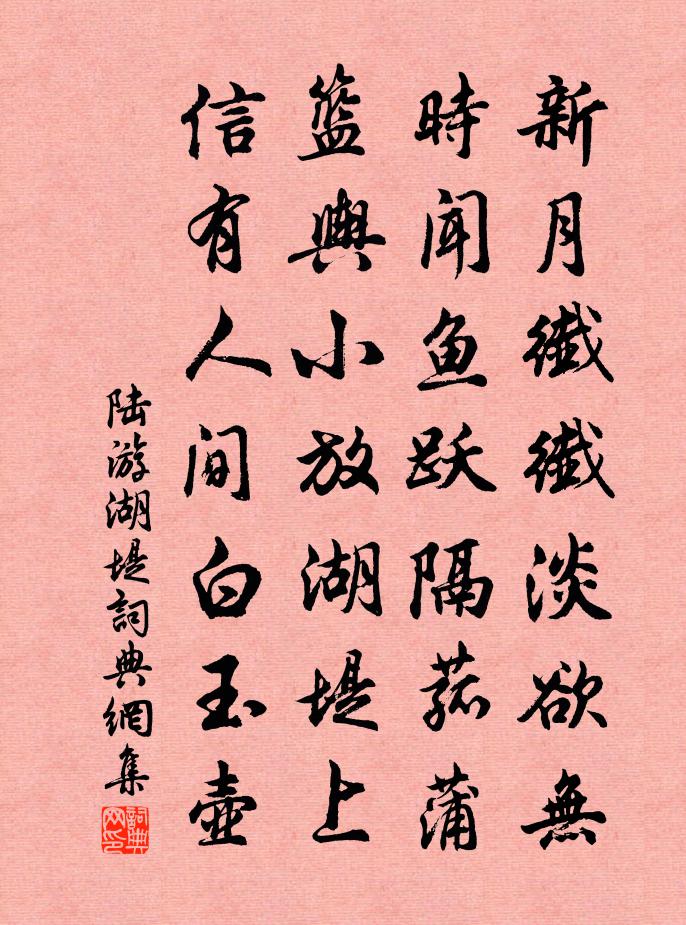 新月纖纖淡欲無
時聞鱼跃隔菰蒲
籃輿小放湖堤上
信有人间白玉壺
陆游湖堤詞典網集
詞典网印